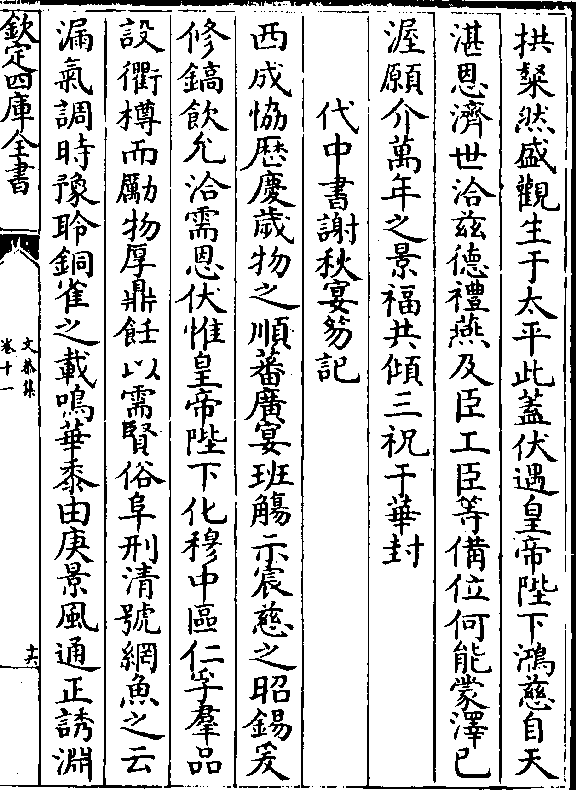 拱粲然盛觀生于太平此蓋伏遇皇帝陛下鴻慈自天
湛恩濟世洽兹德禮燕及臣工臣等備位何能蒙澤已
渥願介萬年之景福共傾三祝于華封
代中書謝秋宴笏記
西成恊歴慶歲物之順蕃廣宴班觴示宸慈之昭錫爰
修鎬飲允洽需恩伏惟皇帝陛下化穆中區仁孚羣品
設衢樽而勵物厚鼎飪以需賢俗阜刑清號網魚之云
漏氣調時豫聆銅雀之載鳴華黍由庚景風通正誘淵
欽定四庫全書
文恭集
卷十一
十六